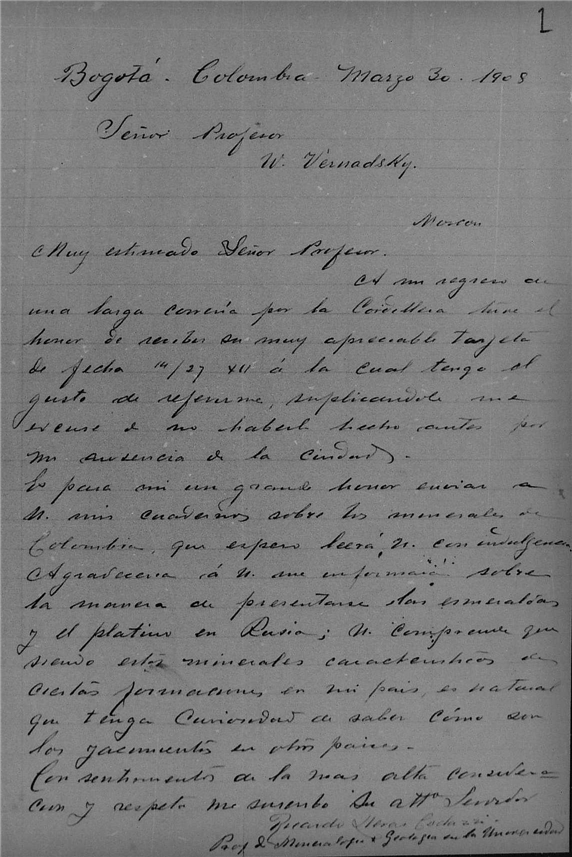 1
Bogotá - Colombia - Marzo 30 - 1908
Señor Profesor
W. Vernadsky.
Moscou
Muy estimado Señor Profesor.
A mi regreso de
una larga correría por la Cordillera tuve el
honor de recibir su muy apreciable tarjeta
de fecha 14/27 XII á la cual tengo el
gusto de referirme, suplicandole me
excuse de no haberlo hecho antes por
mi ausencia de la ciudad.
Es para mi un grande honor enviar a
U. mis cuadernos sobre los minerales de
Colombia, que espero leerá U. con indulgencia.
Agradeceria á U. me informara sobre
la manera de presentarse las esmeraldas
y el platino en Rusia; U. comprende que
siendo estos minerales caracteristicos de
ciertas formaciones en mi pais, es natural
que tenga curiosidad de saber cómo son
los yacimientos en otros paises.-
Con sentimientos de la mas alta considera-
cion y respeto me suscribo Su atto Servidor
Ricardo Lleras Codazzi
Prof. de Mineralogia & Geologia en la Universidad